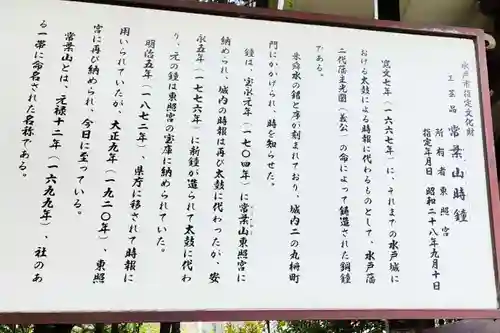 水戸市指定文化財
工芸品　常葉山時鐘
所有者　東照宮
指定年月日　昭和二十八年九月十日
寛文七年（一六六七年）に、それまでの水戸城に
おける太鼓による時報に代わるものとして、水戸藩
二代藩主光圀（義公）の命によって鋳造された銅鐘
である。
朱舜水の銘と序が刻まれており、城内二の丸柵町
門にかかげられ、時を知らせた。
鐘は、宝永元年（一七〇四年）に常葉山東照宮に
納められ、城内の時報は再び太鼓に代わったが、安
永五年（一七七六年）に新鐘が造られて太鼓に代わ
り、元の鐘は東照宮の宝庫に納められていた。
明治五年（一八七二年）、県庁に移されて時報に
用いられていたが、大正九年（一九二〇年）、東照
宮に再び納められ、今日に至っている。
常葉山とは、元禄十二年（一六九九年）、社のあ
る一帯に命名された名称である。